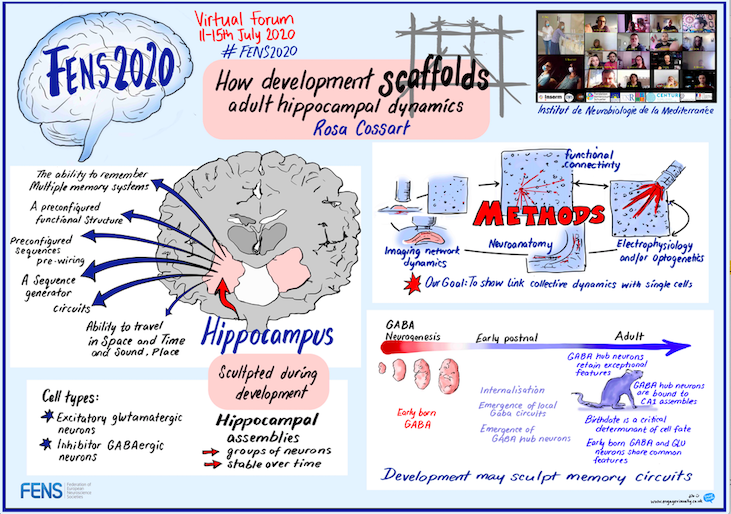 FENS2020
Virtual Forum
11-15th July 2020
# FENS2020
How development scaffolds
adult hippocampal dynamics
Rosa Cossart
Institut de Neurobiologie de la Mediterranée
The ability to remember
Multiple memory systems
A preconfigured
functional Structure
Preconfigured
sequences
pre-wiring
A Sequence
generator
circuits
Ability to travel
in Space and Time
and Sound, Place
Hippocampus
Sculpted during
development
Cell types:
Excitatory glutamatergic
neurons
Inhibitor GABAergic
neurons
Hippocampal
assemblies
groups of neurons
stable over time
functional
connectivity
METHODS
Imaging network
dynamics
Neuroanatomy
Electrophysiology
and/or optogenetics
Our Goal: To show link collective dynamics with single cells
GABA
Neurogenesis
Early postnal
Adult
Early born
GABA
Internalisation
Emergence of local
Gaba circuits
Emergence of
GABA hub neurons
GABA hub neurons
retain exceptional
features
GABA hub neurons
are bound to
CA1 assembles
Birthdate is a critical
determinant of cell fate
Early born GABA and GLU
neurons share common
features
Development may sculpt memory circuits
FENS
Federation of
European
Neuroscience
Societies
www.engagevisually.co.uk